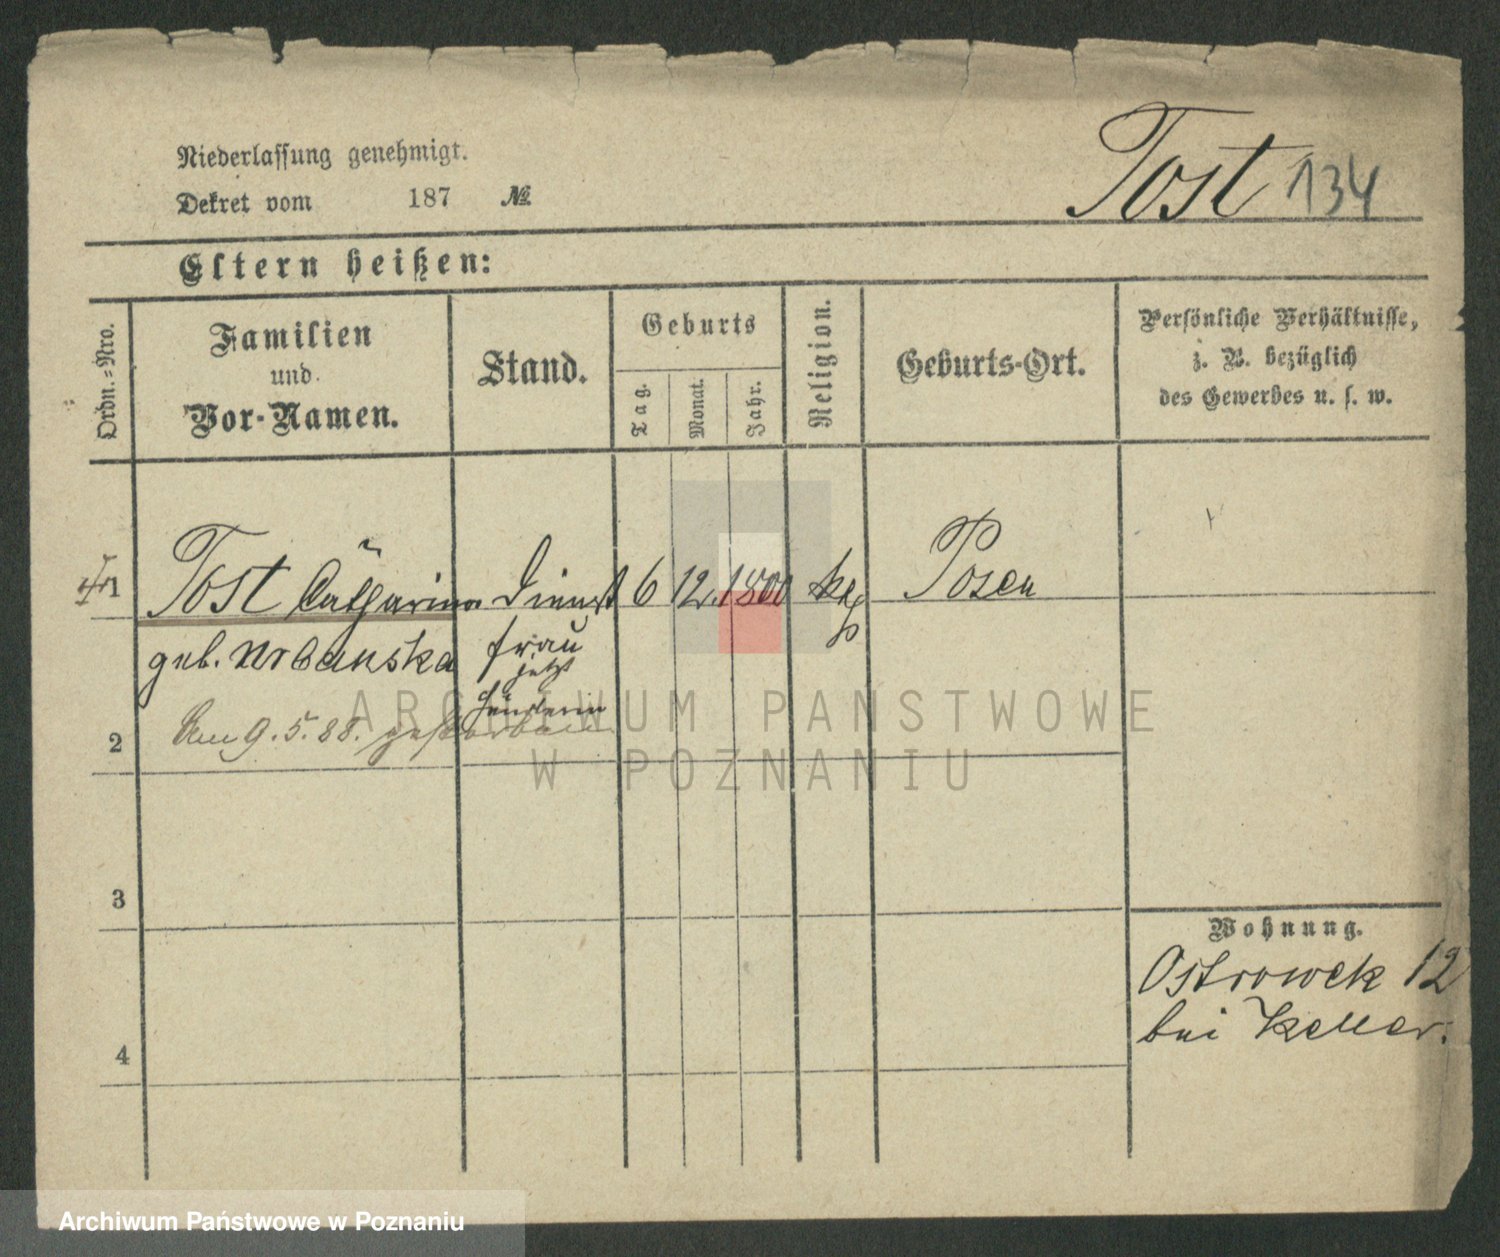 Niederlassung genehmigt.
Dekret vom 187 №
Tost 134
Eltern heißen:
Ordn.-Nro.
Familien
und
Vor-Namen.
Stand.
Geburts
Tag.
Monat.
Jahr.
Religion.
Geburts-Ort.
Persönliche Verhältnisse,
z. B. bezüglich
des Gewerbes u. s. w.
1 Tost Catharina Dienst 6 12. 1800 Posen
geb. Urbanska frau
jetzt
Händlerin
2 Am 9. 5. 88. gestorben
3
4
Wohnung.
Ostrowek 12
bei Keller.
ARCHIWUM PAŃSTWOWE
W POZNANIU
Archiwum Państwowe w Poznaniu